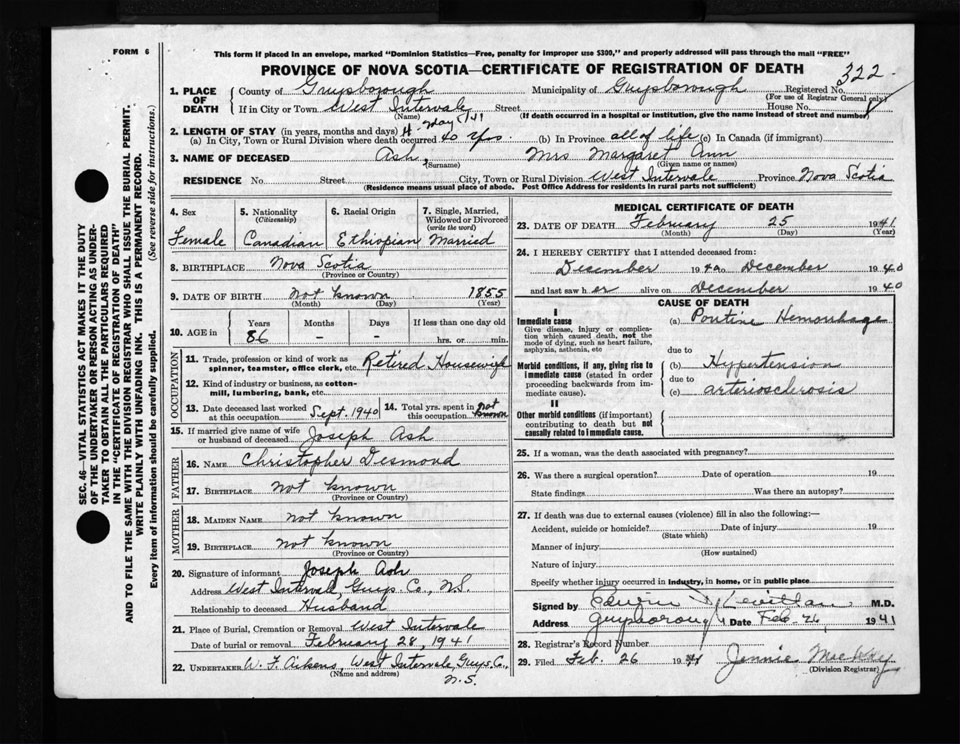 FORM 6
This form if placed in an envelope, marked "Dominion Statistics—Free, penalty for improper use $300," and properly addressed will pass through the mail "FREE"
PROVINCE OF NOVA SCOTIA—CERTIFICATE OF REGISTRATION OF DEATH
322
1. PLACE OF DEATH County of Guysborough Municipality of Guysborough Registered No.
(For use of Registrar General only)
If in City or Town West Intervale Street House No.
(Name) (If death occurred in a hospital or institution, give the name instead of street and number)
2. LENGTH OF STAY (in years, months and days)
(a) In City, Town or Rural Division where death occurred 40 yrs. (b) In Province all of life (c) In Canada (if immigrant)
3. NAME OF DECEASED Ash, Mrs Margaret Ann
(Surname) (Given name or names)
RESIDENCE No. Street City, Town or Rural Division West Intervale Province Nova Scotia
(Residence means usual place of abode. Post Office Address for residents in rural parts not sufficient)
4. Sex Female
5. Nationality (Citizenship) Canadian
6. Racial Origin Ethiopian
7. Single, Married, Widowed or Divorced (write the word) Married
8. BIRTHPLACE Nova Scotia
(Province or Country)
9. DATE OF BIRTH Not Known 1855
(Month) (Day) (Year)
10. AGE in Years Months Days If less than one day old
86 – – hrs. or min.
OCCUPATION
11. Trade, profession or kind of work as spinner, teamster, office clerk, etc. Retired Housewife
12. Kind of industry or business, as cotton-mill, lumbering, bank, etc.
13. Date deceased last worked at this occupation Sept. 1940
14. Total yrs. spent in this occupation not known
15. If married give name of wife or husband of deceased Joseph Ash
FATHER
16. NAME Christopher Desmond
17. BIRTHPLACE Not Known
(Province or Country)
MOTHER
18. MAIDEN NAME Not Known
19. BIRTHPLACE Not Known
(Province or Country)
20. Signature of informant Joseph Ash
Address West Intervale, Guys. Co., N.S.
Relationship to deceased Husband
21. Place of Burial, Cremation or Removal West Intervale
Date of burial or removal February 28, 1941
22. UNDERTAKER W. F. Aikens, West Intervale, Guys. Co.,
(Name and address) N.S.
MEDICAL CERTIFICATE OF DEATH
23. DATE OF DEATH February 25 1941
(Month) (Day) (Year)
24. I HEREBY CERTIFY that I attended deceased from:
December 1940 to December 1940
and last saw her alive on December 1940
CAUSE OF DEATH
I
Immediate cause
Give disease, injury or complication which caused death, not the mode of dying, such as heart failure, asphyxia, asthenia, etc
(a) Pontine Hemorrhage
due to
Morbid conditions, if any, giving rise to immediate cause (stated in order proceeding backwards from immediate cause).
(b) Hypertension
due to
(c) arteriosclerosis
II
Other morbid conditions (if important) contributing to death but not causally related to immediate cause.
25. If a woman, was the death associated with pregnancy?
26. Was there a surgical operation? Date of operation 19
State findings Was there an autopsy?
27. If death was due to external causes (violence) fill in also the following:—
Accident, suicide or homicide? Date of injury 19
(State which)
Manner of injury
(How sustained)
Nature of injury
Specify whether injury occurred in industry, in home, or in public place
Signed by M.D.
Address Guysborough Date Feb. 26 1941
28. Registrar's Record Number
29. Filed Feb. 26 1941 Jennie MacKay
(Division Registrar)
SEC. 46—VITAL STATISTICS ACT MAKES IT THE DUTY
OF THE UNDERTAKER OR PERSON ACTING AS UNDERTAKER
TO OBTAIN ALL THE PARTICULARS REQUIRED
IN THE "CERTIFICATE OF REGISTRATION OF DEATH"
AND TO FILE THE SAME WITH THE DIVISION REGISTRAR WHO SHALL ISSUE THE BURIAL PERMIT.
WRITE PLAINLY WITH UNFADING INK. THIS IS A PERMANENT RECORD.
Every item of information should be carefully supplied. (See reverse side for instructions.)